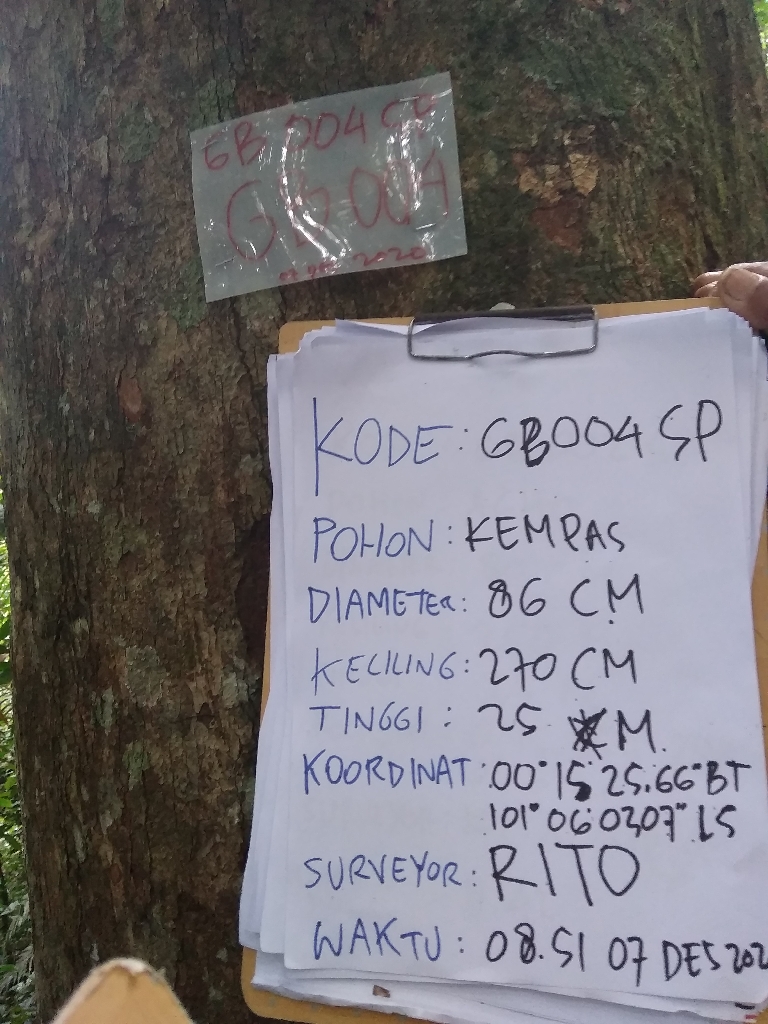 GB 004 SP
GB 004
07 DES 2020
KODE: GB004 SP
POHON: KEMPAS
DIAMETER: 86 CM
KECILING: 270 CM
TINGGI: 25 M
KOORDINAT: 00° 15' 25.66" BT
101° 06' 0307" LS
SURVEYOR: RITO
WAKTU: 08.51 07 DES 202